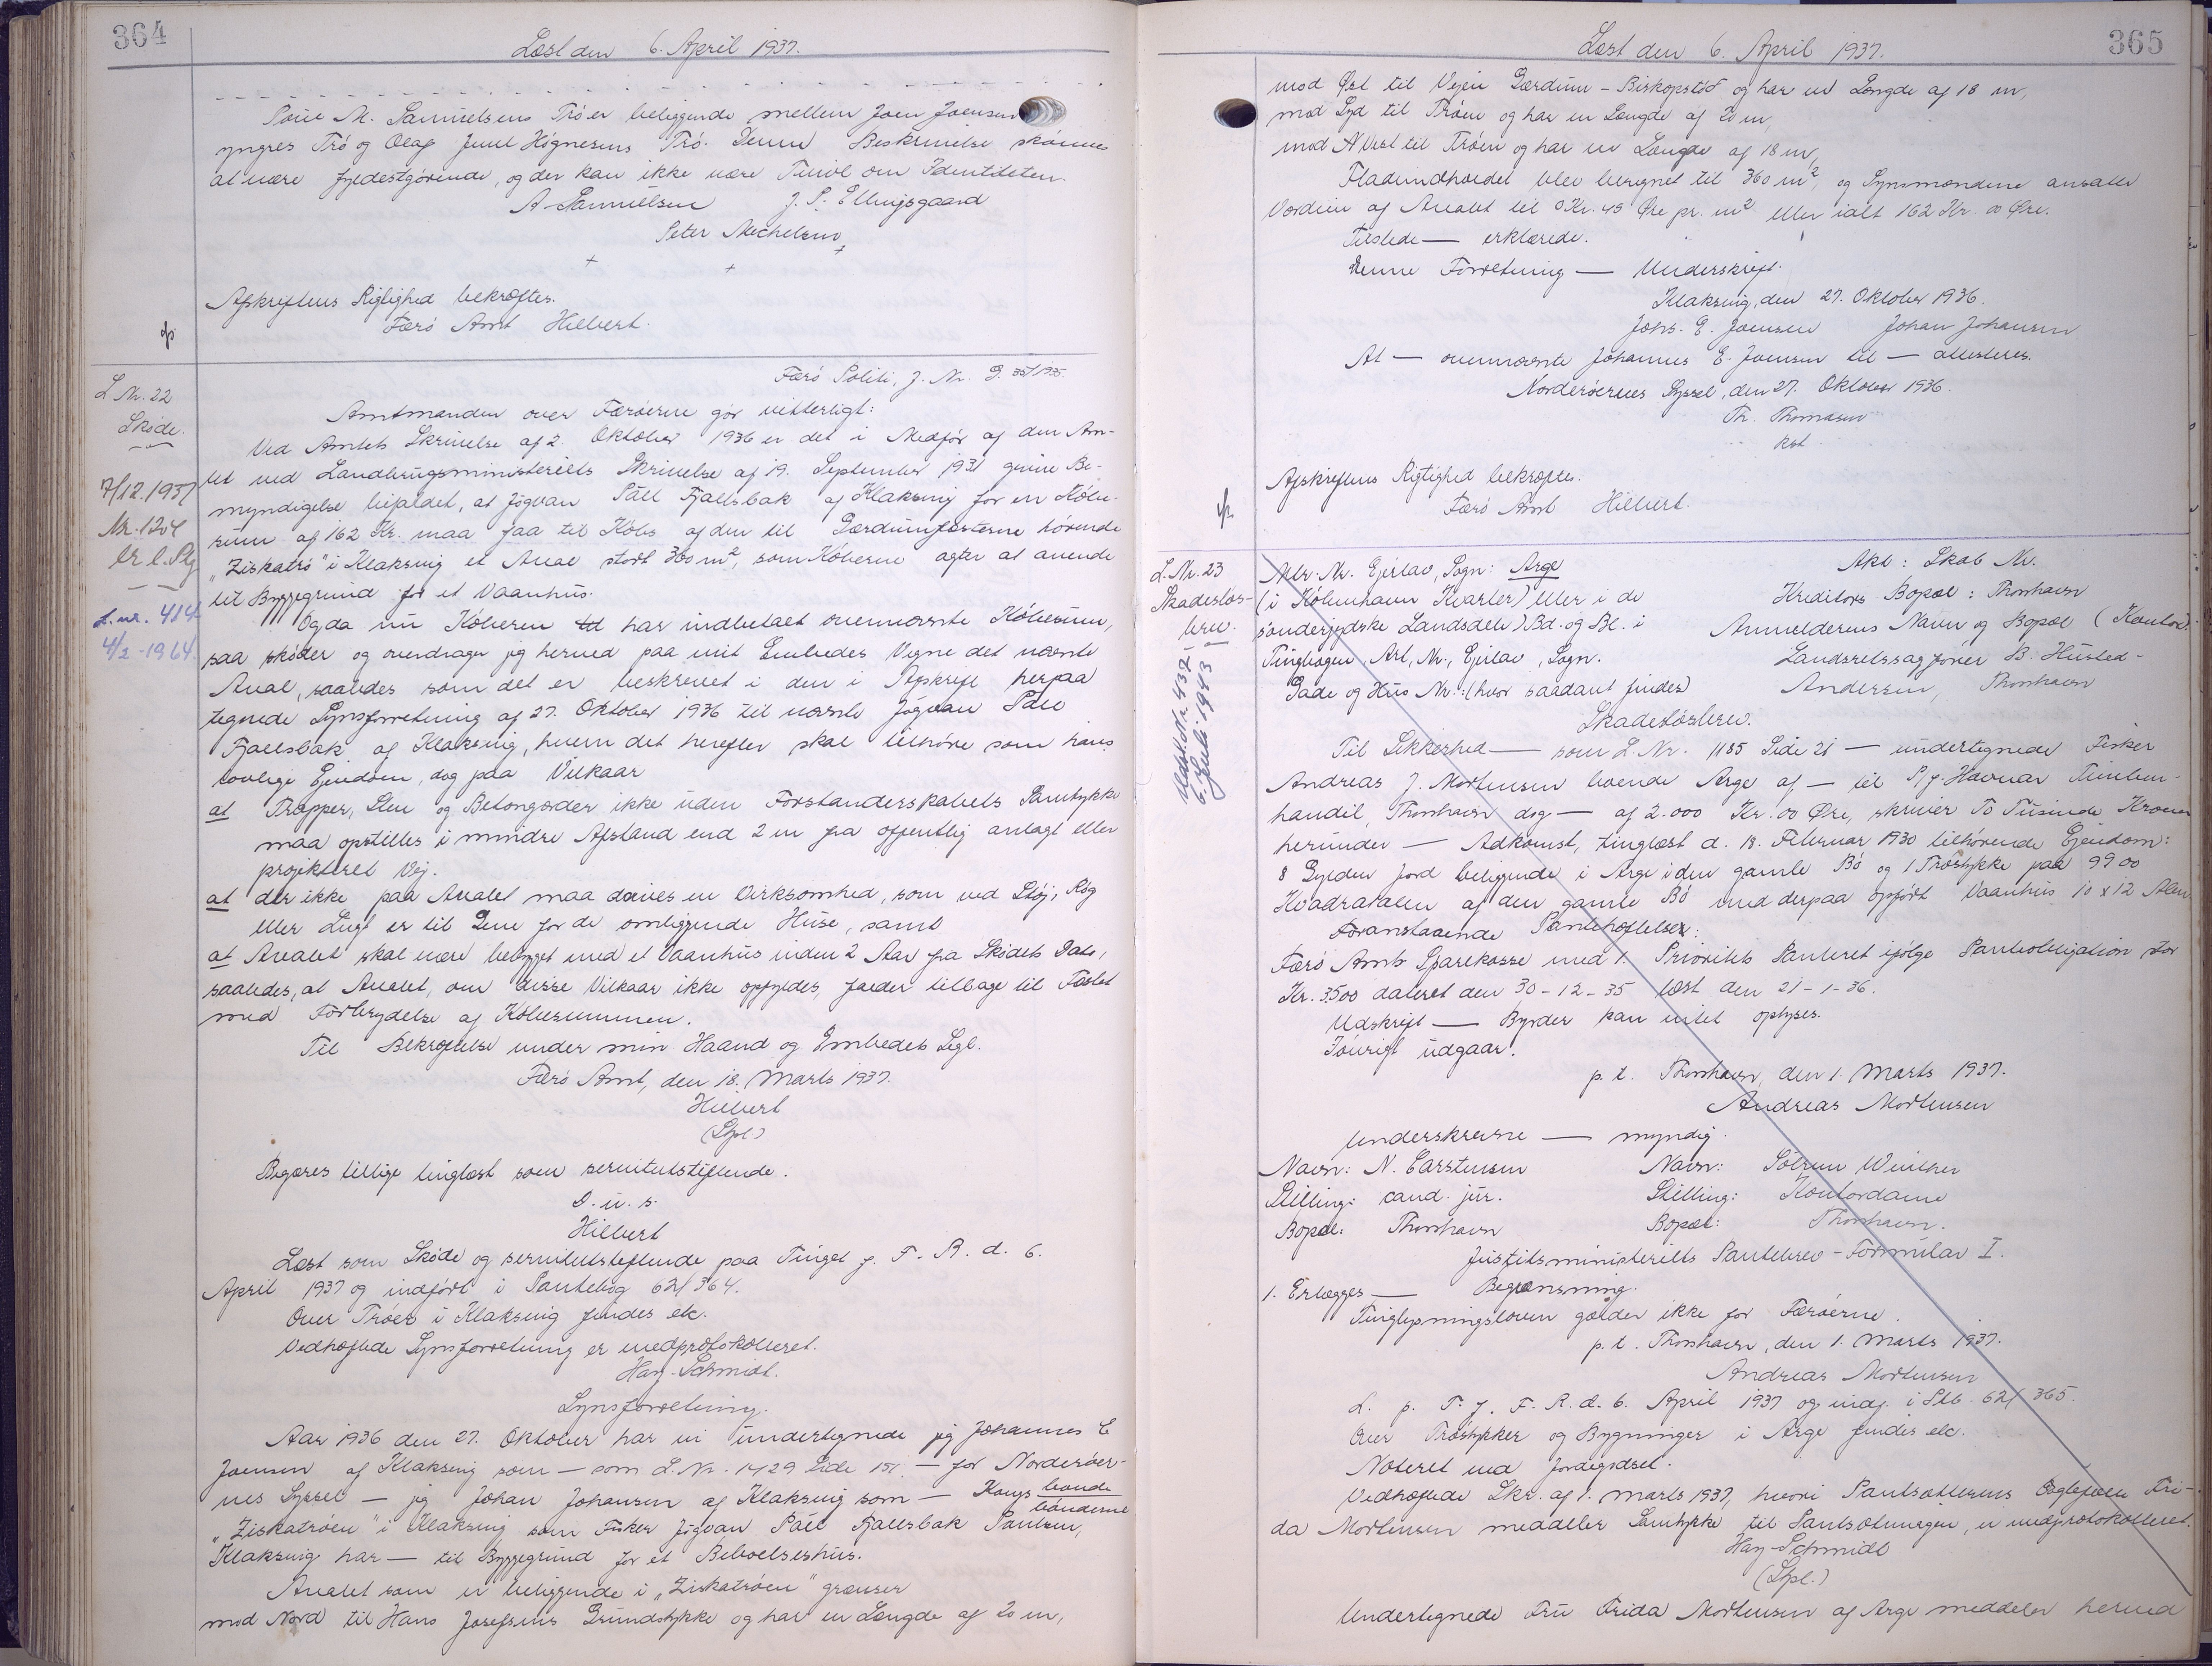 364
Læst den 6. April 1937.
Poul M. Samuelsens Trø er beliggende mellem Joen Joensen
yngres Trø og Olaf Juul Høgnesens Trø. Denne Beskrivelse skønnes
at være fyldestgørende, og der kan ikke være Tvivl om Identiteten.
A. Samuelsen J. P. Ellingsgaard
Peter Michelsen
+ + +
Afskriftens Rigtighed bekræftes.
Færø Amt Hilbert.
L. Nr. 22
Skøde.
7/12.1937
Nr. 1204
L. nr. 484
4/2-1964.
Færø Politi, J. Nr. 35/1935
Amtmanden over Færøerne gør vitterligt:
Ved Amtets Skrivelse af 2. Oktober 1936 er det i Medfør af den Am-
tet ved Landbrugsministeriets Skrivelse af 19. September 1931 givne Be-
myndigelse bifaldet, at Jógvan Páll Fjallsbak af Klaksvig for en Købe-
sum af 162 Kr. maa faa til Købs af den til Gærdumfæsterne hørende
"Ziskatrø" i Klaksvig et Areal stort 360 m², som Køberen agter at anvende
til Byggegrund for et Vaanhus.
Og da nu Køberen har indbetalt ovennævnte Købesum,
saa skøder og overdrager jeg herved paa mit Embedes Vegne det nævnte
Areal, saaledes som det er beskrevet i den i Afskrift herpaa
tegnede Synsforretning af 27. Oktober 1936 til nævnte Jógvan Páll
Fjallsbak af Klaksvig, hvem det herefter skal tilhøre som hans
lovlige Ejendom, dog paa Vilkaar
at Trapper, Sten og Betongærder ikke uden Forstanderskabets Samtykke
maa opstilles i mindre Afstand end 2 m fra offentlig anlagt eller
projekteret Vej.
at der ikke paa Arealet maa drives en Virksomhed, som ved Støj, Røg
eller Lugt er til Gene for de omliggende Huse, samt
at Arealet skal være bebygget med et Vaanhus inden 2 Aar fra Skødets Dato,
saaledes, at Arealet, om disse Vilkaar ikke opfyldes, falder tilbage til Fæstet
med Fortbrydelse af Købesummen.
Til Bekræftelse under min Haand og Embedets Segl.
Færø Amt, den 18. Marts 1937.
Hilbert
(Sgl.)
Begæres tillige tinglæst som servitutstiftende.
D. u. s.
Hilbert
Læst som Skøde og servitutstiftende paa Tinget f. F. R. d. 6.
April 1937 og indført i Pantebog 62/364.
Over Trøer i Klaksvig findes etc.
Vedhæftede Synsforretning er medprotokolleret.
Hay-Schmidt.
Synsforretning.
Aar 1936 den 27. Oktober har vi undertegnede jeg Johannes E
Joensen af Klaksvig som — som L. Nr. 1429 Side 151 — for Norderøer-
nes Syssel — jeg Johan Johansen af Klaksvig som — Kongsbonde
bønderne
"Ziskatrøen" i Klaksvig som Fisker Jógvan Páll Fjallsbak Poulsen,
Klaksvig har — til Byggegrund for et Beboelseshus.
Arealet som er beliggende i "Ziskatrøen" grænser
mod Nord til Hans Josefsens Grundstykke og har en Længde af 20 m,
365
Læst den 6. April 1937.
mod Øst til Vejen Gærdum - Biskopstød og har en Længde af 18 m,
mod Syd til Trøen og har en Længde af 20 m,
mod Vest til Trøen og har en Længde af 18 m,
Fladeindholdet blev beregnet til 360 m², og Synsmændene ansatte
Værdien af Arealet til 0 Kr. 45 Øre pr. m² eller ialt 162 Kr. 00 Øre.
Tilstede — erklærede.
Denne Forretning — Underskrift.
Klaksvig, den 27. Oktober 1936.
Johs. E. Joensen Johan Johansen
At — ovennævnte Johannes E. Joensen til — attesteres.
Norderøernes Syssel, den 27. Oktober 1936.
Th. Thomasen
kst.
Afskriftens Rigtighed bekræftes.
Færø Amt Hilbert.
L. Nr. 23
Skadesløs-
brev.
Udsl. Nr. 432
6. Juli 1943
Mtr. Nr. Ejerlav, Sogn: Arge
(i København Kvarter) eller i de
sønderjydske Landsdele) Bd. og Bl. i
Tingbogen, Art, Nr., Ejerlav, Sogn.
Gade og Hus Nr.: (hvor saadant findes)
Akt: Skab Nr.
Kreditors Bopæl: Thorshavn
Anmelderens Navn og Bopæl (Kontor).
Landsretssagfører B. Husted-
Andersen, Thorshavn
Skadesløsbrev.
Til Sikkerhed — som L. Nr. 1185 Side 21 — undertegnede Fisker
Andreas J. Mortensen boende Arge af — til P/f. Havnar Timbur-
handil, Thorshavn dog — af 2.000 Kr. 00 Øre, skriver To Tusinde Kroner
herunder — Adkomst, tinglæst d. 18. Februar 1930 tilhørende Ejendom:
8 Gylden Jord beliggende i Arge i den gamle Bø og 1 Trøstykke paa 9900
Kvadratalen af den gamle Bø med derpaa opført Vaanhus 10 x 12 Alen.
Foranstaaende Pantehæftelser:
Færø Amts Sparekasse med 1. Prioritets Panteret ifølge Panteobligation stor
Kr. 3500 dateret den 30-12-35 læst den 21-1-36.
Udskrift — Byrder kan intet oplyses.
Iøvrigt udgaar.
p. t. Thorshavn, den 1. Marts 1937.
Andreas Mortensen
Underskrevne — myndig.
Navn: N. Carstensen Navn: Sólrun Winther
Stilling: cand. jur. Stilling: Kontordame
Bopæl: Thorshavn Bopæl: Thorshavn.
Justitsministeriets Pantebrev-Formular I.
1. Erlægges — Begrænsning.
Tinglysningsloven gælder ikke for Færøerne.
p. t. Thorshavn, den 1. Marts 1937.
Andreas Mortensen
L. p. T. f. F. R. d. 6. April 1937 og indf. i Ptb. 62/365.
Over Trøstykker og Bygninger i Arge findes etc.
Noteret ved Jordegodset.
Vedhæftede Skr. af 1. Marts 1937, hvori Pantsætterens Ægtefælle Fri-
da Mortensen meddeler Samtykke til Pantsætningen, er medprotokolleret.
Hay-Schmidt
(Sgl.)
Undertegnede Fru Frida Mortensen af Arge meddeler herved